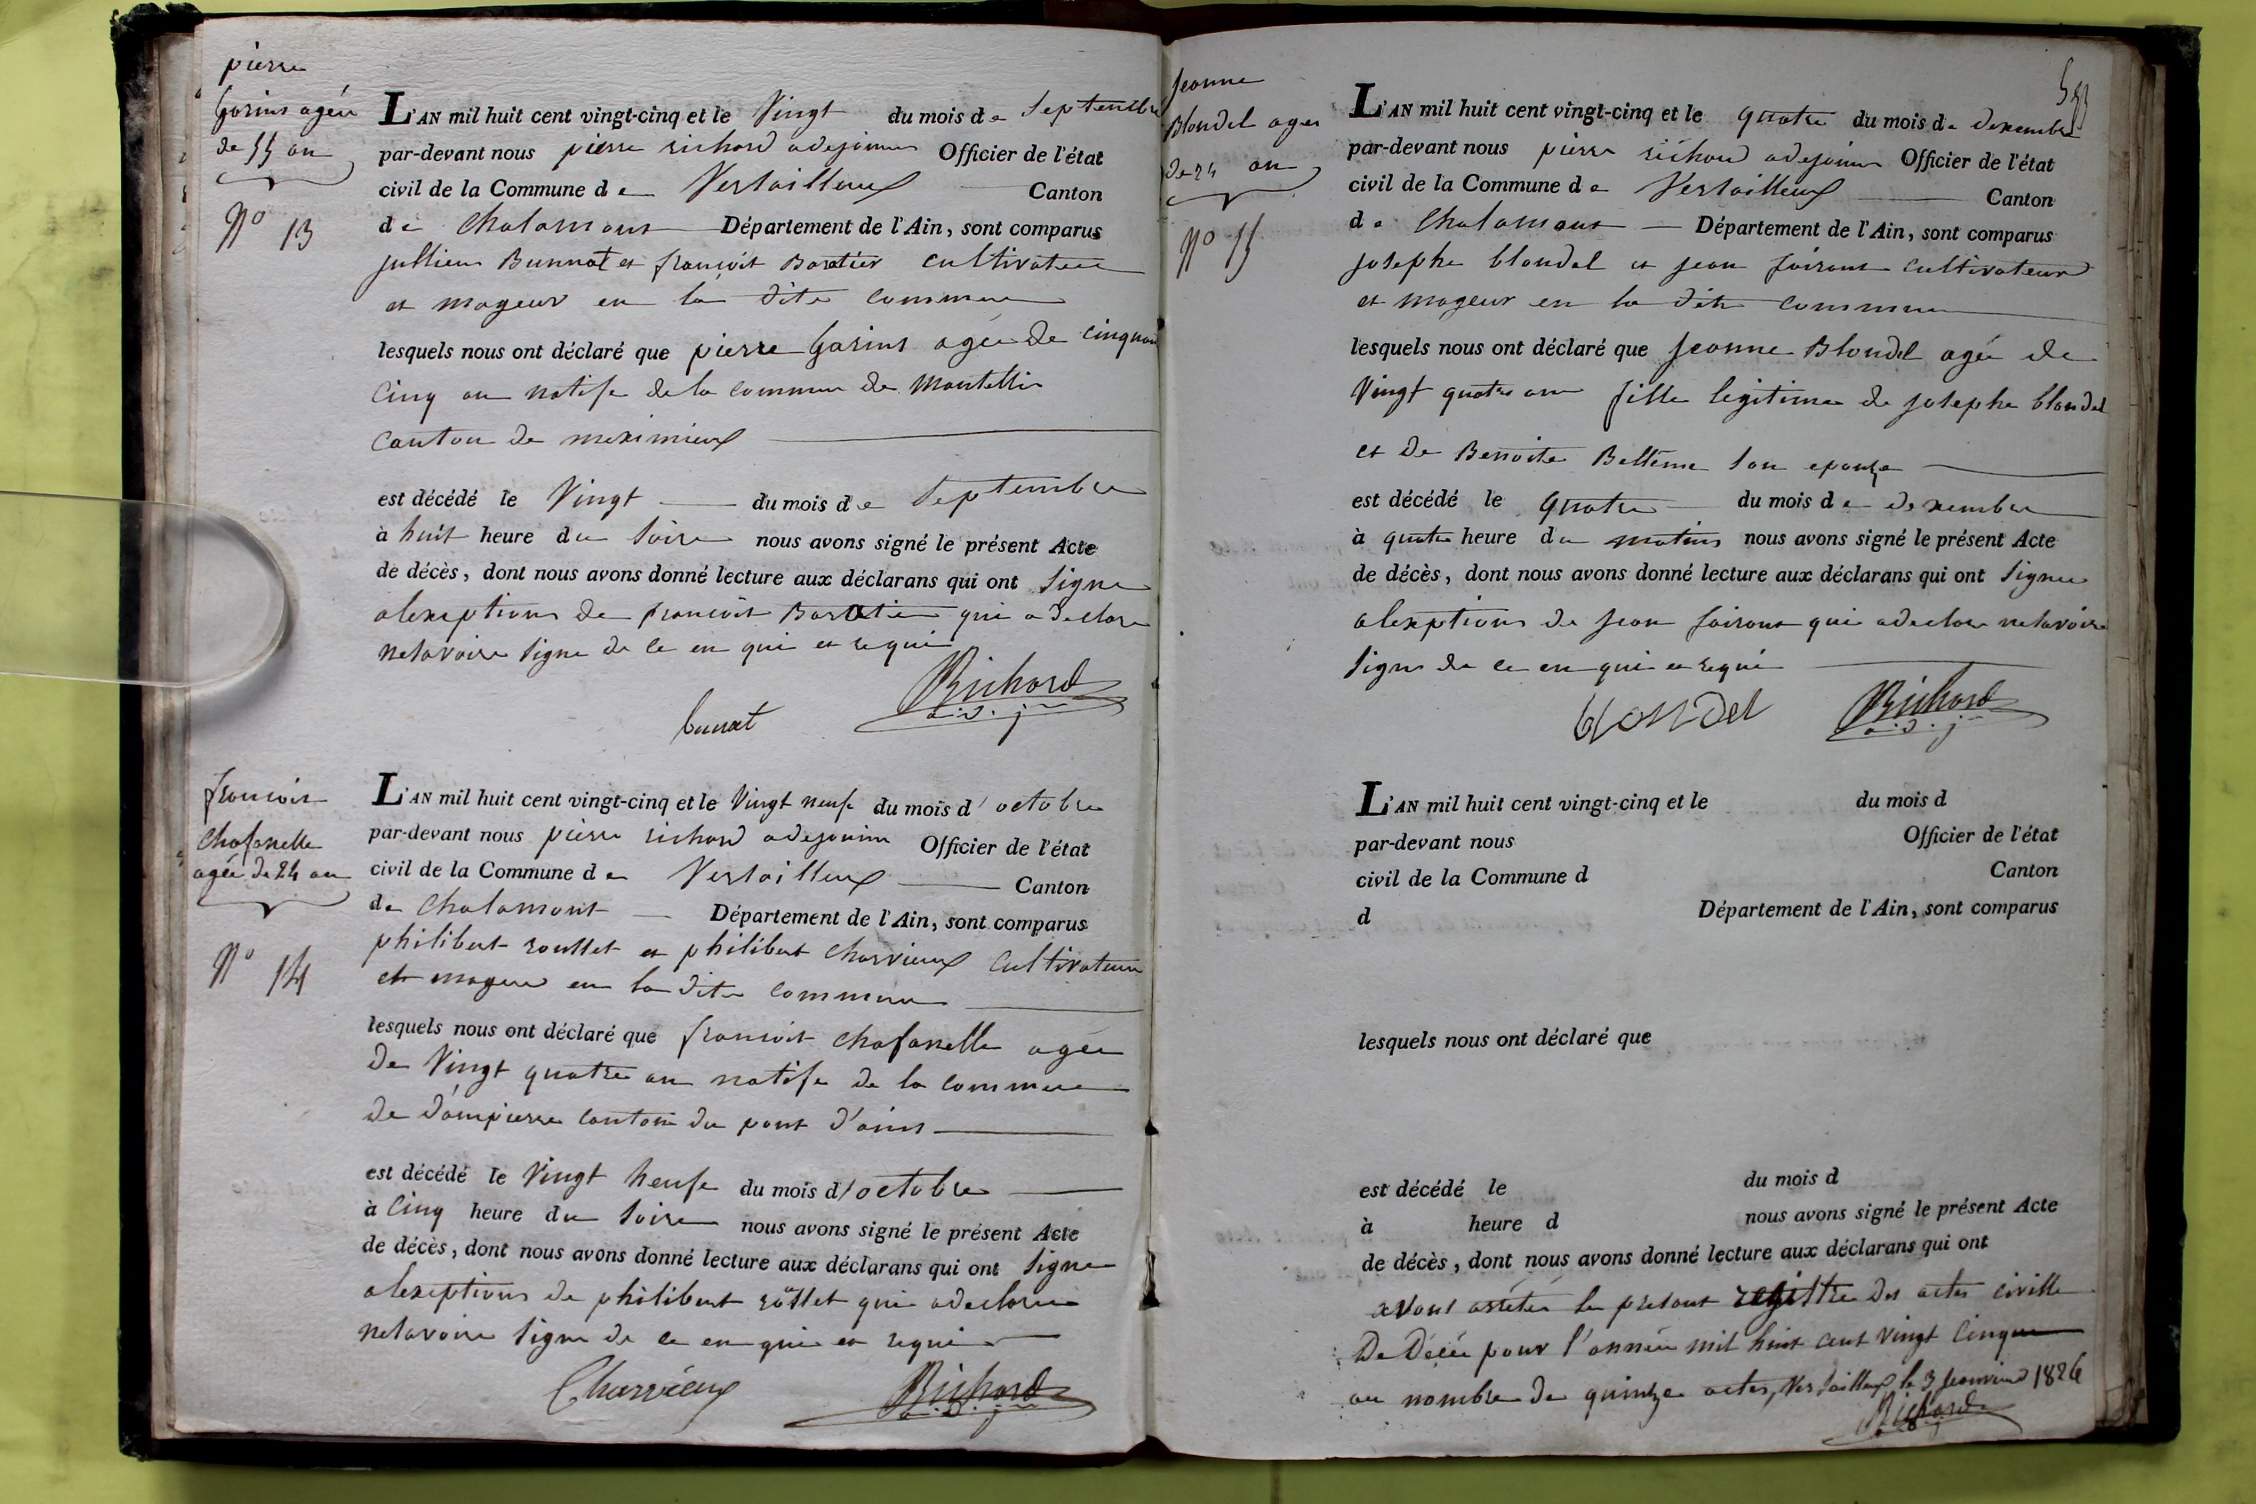 pierre
Gorins agée
de 55 an
N° 13
L'AN mil huit cent vingt-cinq et le Vingt du mois de septembre
par-devant nous pierre richard adejoins Officier de l'état
civil de la Commune de Versailleux Canton
de Chalamont Département de l'Ain, sont comparus
jullien Bunnat et françoit Boratier cultivateur
et mageur en la dite commune
lesquels nous ont déclaré que pierre Gorins agée de cinquan
cinq an natife de la commun de Montellis
canton de meximieux
est décédé le Vingt du mois de septembre
à huit heure du soire nous avons signé le présent Acte
de décès, dont nous avons donné lecture aux déclarans qui ont signe
alexeptions de françoit Boratier qui a declare
nesavoire signe de ce en qui et requi
bunat Richard
a.d.j
francois
Chafanelle
agée de 24 an
N° 14
L'AN mil huit cent vingt-cinq et le Vingt neufe du mois d'octobre
par-devant nous pierre richard adejoins Officier de l'état
civil de la Commune de Versailleux Canton
de Chalamont Département de l'Ain, sont comparus
philibert roullet et philibert charvieux cultivateur
et mageur en la dite commune
lesquels nous ont déclaré que francoit chafanelle agée
De Vingt quatre an natife de la commune
De Dompierre canton du pont d'ains
est décédé le Vingt neufe du mois d'octobre
à cinq heure du soire nous avons signé le présent Acte
de décès, dont nous avons donné lecture aux déclarans qui ont signe
alexeptions de philibert roullet qui adeclare
nesavoire signe de ce en qui et requi
Charvieux Richard
a.d.j
Jeanne
Blondel agée
de 24 an
N° 15
L'AN mil huit cent vingt-cinq et le quatre du mois de dexembre
par-devant nous pierre richard adejoins Officier de l'état
civil de la Commune de Versailleux Canton
de Chalamont Département de l'Ain, sont comparus
josephe blondel et jean foirant cultivateur
et mageur en la dite commune
lesquels nous ont déclaré que jeanne Blondel agée de
Vingt quatre an fille legitime de josephe blondel
et de Benoite Belleme son epouze
est décédé le quatre du mois de dexembre
à quatre heure du matins nous avons signé le présent Acte
de décès, dont nous avons donné lecture aux déclarans qui ont signe
alexeptions de jean foirant qui adeclare nesavoire
signe de ce en qui et requi
blondel Richard
a.d.j
L'AN mil huit cent vingt-cinq et le du mois d
par-devant nous Officier de l'état
civil de la Commune d Canton
d Département de l'Ain, sont comparus
lesquels nous ont déclaré que
est décédé le du mois d
à heure d nous avons signé le présent Acte
de décès, dont nous avons donné lecture aux déclarans qui ont
avons arrétée le present registre des actes civille
De Décée pour l'année mil huit cent vingt cinque
au nombre de quinze actes, Versailleux le 3 janvier 1826
Richard